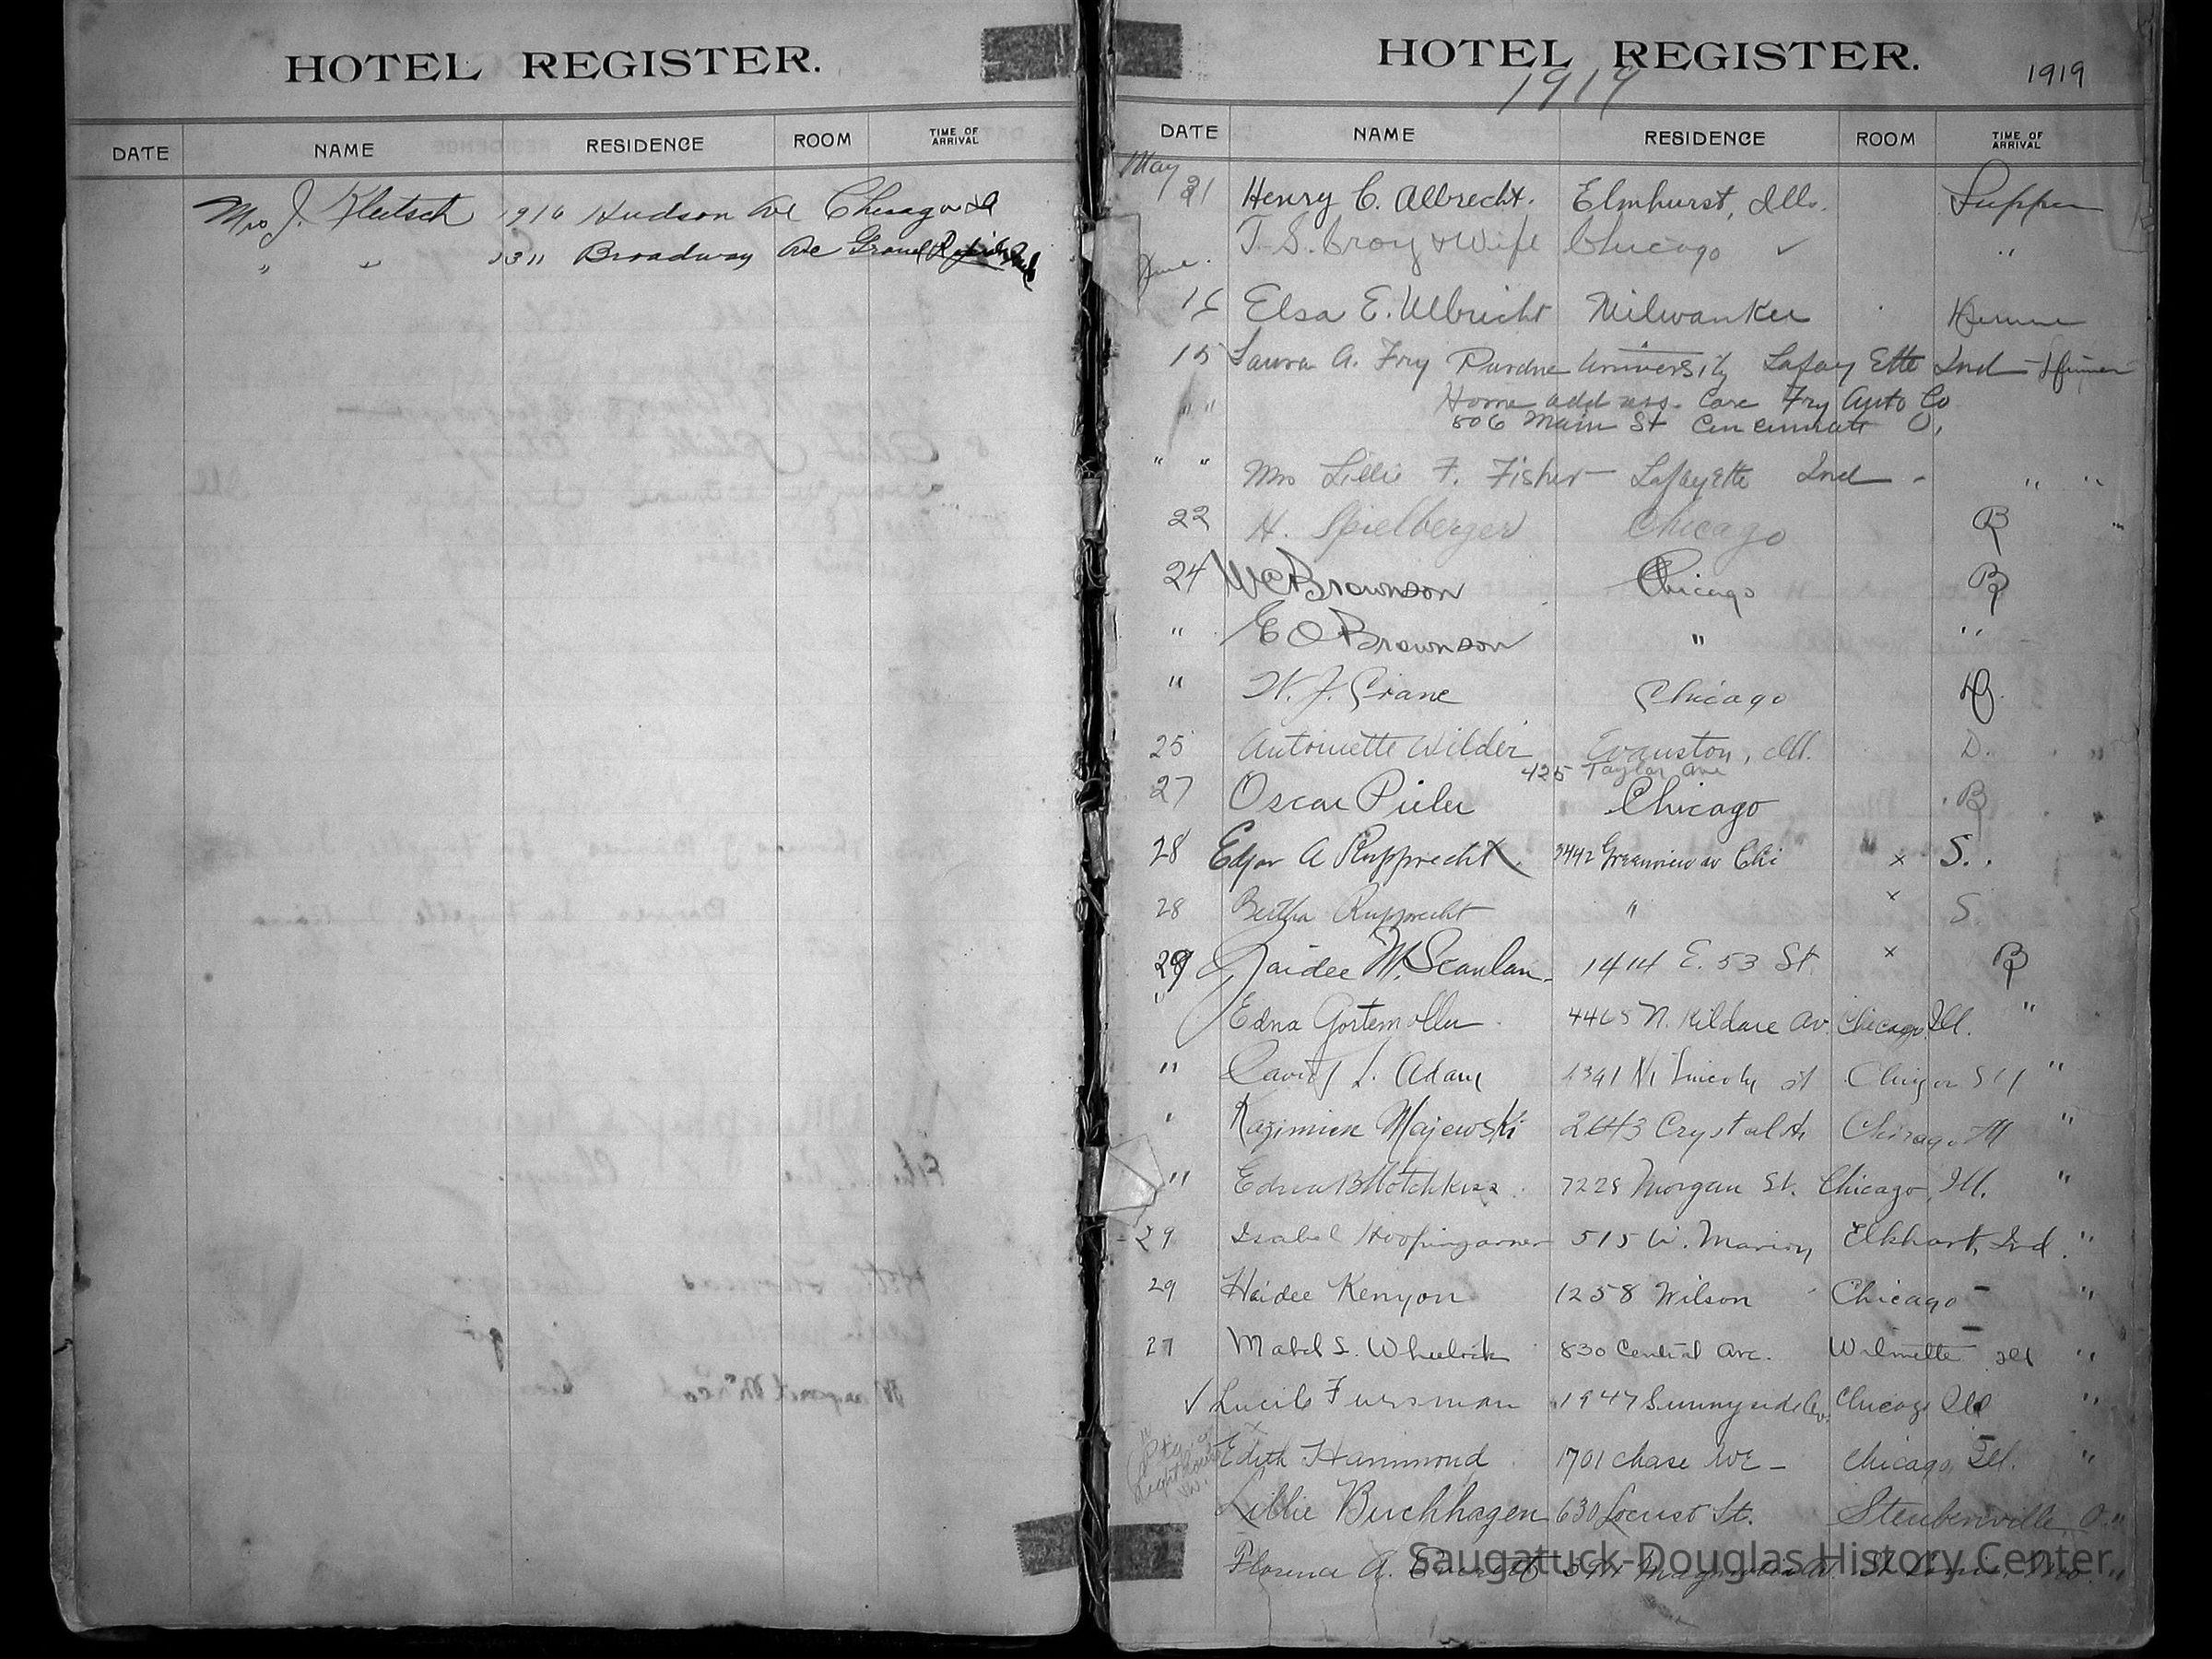 HOTEL REGISTER.
DATE NAME RESIDENCE ROOM TIME OF ARRIVAL
Mrs J. Kletsch 1916 Hudson Ave Chicago Ill
" " 1311 Broadway Ave Grand Rapids Mich
HOTEL REGISTER.
1919
1919
DATE NAME RESIDENCE ROOM TIME OF ARRIVAL
May
31 Henry C. Albrecht. Elmhurst, Ills. Supper
T. S. Croy & Wife Chicago ✓ "
June
Elsa E. Ulbricht Milwaukee
15 Laura A. Fry Purdue University Lafayette Ind
" " Home address. Care Fry Auto Co
806 Main St Cincinnati O.
" " Mrs Lillie F. Fisher Lafayette Ind - " "
22 H. Spielberger Chicago B
24 Brownson Chicago B
" E O Brownson " "
" W. J. Crane Chicago
25 Antoinette Wilder Evanston, Ill. D.
425 Taylor Ave
27 Oscar Pieler Chicago B
28 Edgar A Rupprecht. 3442 Greenview av Chi x S.
28 Bertha Rupprecht " x S.
29 Haidee M. Scanlan 1414 E. 53 St. x B
" Edna Gortemoller 4465 N. Kildare Av. Chicago Ill. "
" David L. Adam 1341 N. Lincoln st "
" Kazimierz Majewski 2643 Crystal St. Chicago Ill "
" Edna B Hotchkiss 7228 Morgan St. Chicago, Ill. "
29 Isabel Hoopingarner 515 W. Marion Elkhart, Ind. "
29 Haidee Kenyon 1258 Wilson Chicago - "
27 Mabel S. Wheelock 830 Central Ave. Wilmette Ill "
✓ Lucile Fursman 1947 Sunnyside Av. Chicago Ill "
Edith Hammond 1701 Chase Ave - Chicago, Ill. "
Lillie Buchhagen 630 Locust St. Steubenville, O. "
Florence A. St Louis, Mo. "
Saugatuck-Douglas History Center